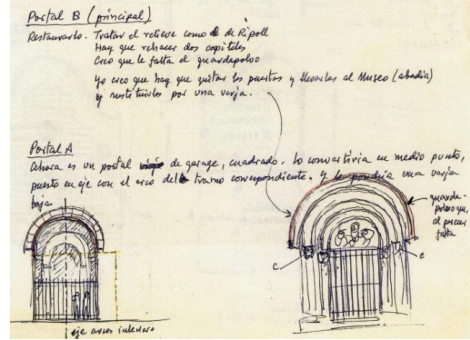 Portal B (principal)
Restaurarlo. Tratar el relieve como el de Ripoll
Hay que rehacer dos capiteles
Creo que le falta el guardapolvo
Yo creo que hay que quitar las puertas y llevarlas al Museo (abadía)
y sustituirlas por una verja.
Portal A
Ahora es un portal de garage, cuadrado. Lo convertiría en medio punto,
puesto en eje con el arco del tramo correspondiente. Y le pondría una verja
baja
guarda-
polvo que,
al parecer
falta
C
C
eje arcos interiores